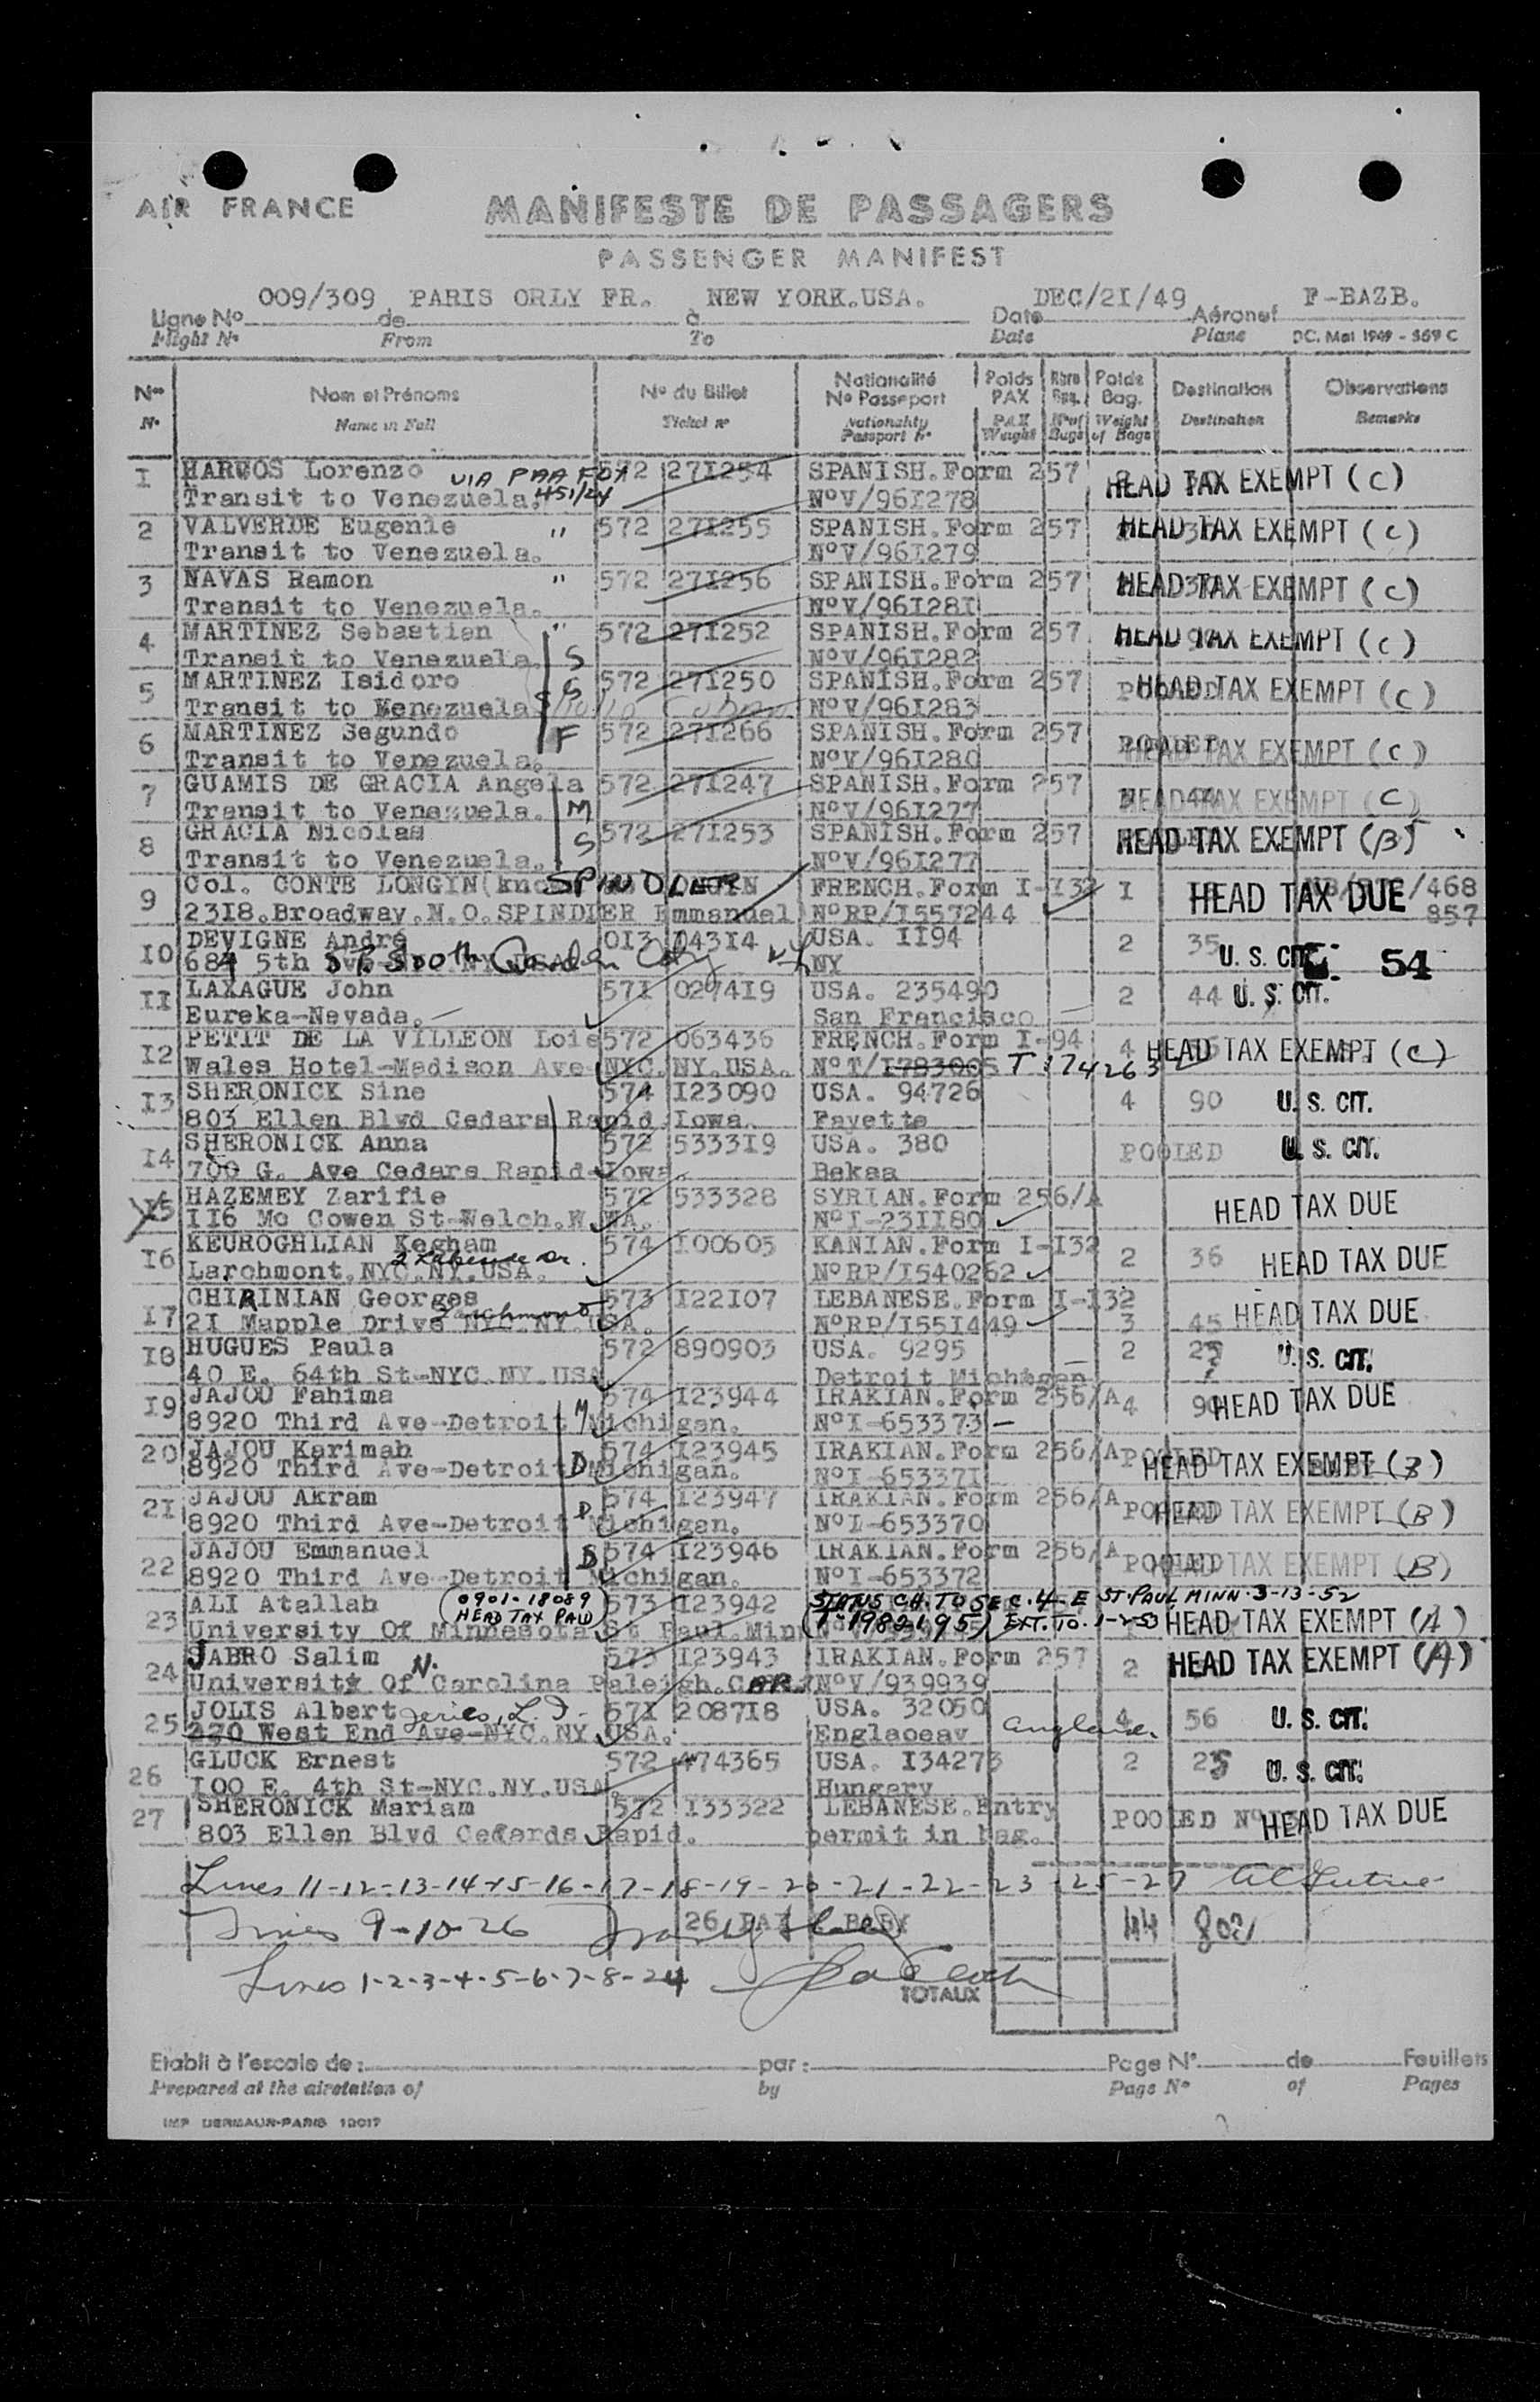 AIR FRANCE
MANIFESTE DE PASSAGERS
PASSENGER MANIFEST
Ligne No 009/309 de PARIS ORLY FR. à NEW YORK.USA. Date DEC/2I/49 Aéronef F-BAZB.
Flight No From To Date Plane DC. Mai 1949 - 569 C
Nos Nom et Prénoms No du Billet Nationalité No Passeport Poids PAX Nbre Bag. Poids Bag. Destination Observations
N. Name in Full Ticket no Nationality Passport No PAX Weight No of Bags Weight of Bags Destination Remarks
I HARWOS Lorenzo VIA PAA 572 27I254 SPANISH.Form 257 HEAD TAX EXEMPT (C)
Transit to Venezuela. 451/24 NoV/96I278
2 VALVERDE Eugenie " 572 27I255 SPANISH.Form 257 HEAD TAX EXEMPT (C)
Transit to Venezuela. NoV/96I279
3 NAVAS Ramon " 572 27I256 SPANISH.Form 257 HEAD TAX EXEMPT (C)
Transit to Venezuela. NoV/96I28I
4 MARTINEZ Sebastian " 572 27I252 SPANISH.Form 257 HEAD TAX EXEMPT (C)
Transit to Venezuela. S NoV/96I282
5 MARTINEZ Isidoro S 572 27I250 SPANISH.Form 257 POOLED HEAD TAX EXEMPT (C)
Transit to Venezuela NoV/96I283
6 MARTINEZ Segundo F 572 27I266 SPANISH.Form 257 POOLED HEAD TAX EXEMPT (C)
Transit to Venezuela. NoV/96I280
7 GUAMIS DE GRACIA Angela 572 27I247 SPANISH.Form 257 44 HEAD TAX EXEMPT (C)
Transit to Venezuela. M NoV/96I277
8 GRACIA Nicolas S 572 27I253 SPANISH.Form 257 HEAD TAX EXEMPT (B)
Transit to Venezuela. NoV/96I277
9 Col. CONTE LONGIN SPINDLER FRENCH.Form I-I32 I HEAD TAX DUE /468
23I8.Broadway.N.O.SPINDLER Emmanuel) NoRP/I557244 857
IO DEVIGNE André 0I3 043I4 USA. II94 2 35 U. S. CIT. 54
684 5th South Garden City NY NY
II LAXAGUE John 57I 0274I9 USA. 235490 2 44 U. S. CIT.
Eureka-Nevada. San Francisco
I2 PETIT DE LA VILLEON Loie 572 063436 FRENCH.Form I-94 4 HEAD TAX EXEMPT (C)
Wales Hotel-Madison Ave NYC.NY.USA. NoT/I783005 T 174263
I3 SHERONICK Sine 574 I23090 USA. 94726 4 90 U. S. CIT.
803 Ellen Blvd Cedars Rapid Iowa. Fayette
I4 SHERONICK Anna 572 5333I9 USA. 380 POOLED U. S. CIT.
700 G. Ave Cedars Rapid-Iowa. Bekaa
I5 HAZEMEY Zarifie 572 533328 SYRIAN.Form 256/A HEAD TAX DUE
II6 Mc Cowen St-Welch.W.WA. NoI-23II80
I6 KEUROGHLIAN Kegham 574 I00605 KANIAN.Form I-I32 2 36 HEAD TAX DUE
Larchmont.NYC.NY.USA. NoRP/I540262
I7 CHIRINIAN Georges 573 I22I07 LEBANESE.Form I-I32 3 45 HEAD TAX DUE
2I Mapple Drive NYC.NY.USA. Larchmont NoRP/I55I449
I8 HUGUES Paula 572 890903 USA. 9295 2 U. S. CIT.
40 E. 64th St-NYC.NY.USA Detroit Michigan
I9 JAJOU Fahima 574 I23944 IRAKIAN.Form 256/A 4 90 HEAD TAX DUE
8920 Third Ave-Detroit Michigan. M NoI-653373
20 JAJOU Karimah 574 I23945 IRAKIAN.Form 256/A POOLED HEAD TAX EXEMPT (B)
8920 Third Ave-Detroit Michigan. D NoI-65337I
2I JAJOU Akram D 574 I23947 IRAKIAN.Form 256/A POOLED HEAD TAX EXEMPT (B)
8920 Third Ave-Detroit Michigan. NoI-653370
22 JAJOU Emmanuel 574 I23946 IRAKIAN.Form 256/A POOLED HEAD TAX EXEMPT (B)
8920 Third Ave-Detroit Michigan. NoI-653372
23 ALI Atallah (0901-18089 HEAD TAX PAID) 573 I23942 STATUS CH. TO SEC. 4-E ST. PAUL MINN. 3-13-52
University Of Minnesota St Paul.Minn (T-1982195) EXT. TO. 1-2-53 HEAD TAX EXEMPT (A)
24 JABRO Salim 573 I23943 IRAKIAN.Form 257 2 HEAD TAX EXEMPT (A)
University Of N. Carolina Raleigh.CAR. NoV/939939
25 JOLIS Albert 57I 2087I8 USA. 32050 4 56 U. S. CIT.
270 West End Ave-NYC.NY.USA. Englaoeav England
26 GLUCK Ernest 572 474365 USA. I34273 2 25 U. S. CIT.
I00 E. 4th St-NYC.NY.USA Hungary
27 SHERONICK Mariam 572 I33322 LEBANESE.Entry POOLED No HEAD TAX DUE
803 Ellen Blvd Cederds Rapid. permit in bag.
Lines 11-12-13-14-15-16-17-18-19-20-21-22-23-25-27
Lines 9-10-26 26 PAX BABY 44
Lines 1-2-3-4-5-6-7-8-24
TOTAUX
Etabli à l'escale de: par: Page No de Feuillets
Prepared at the airstation of by Page No of Pages
IMP DERMAUX-PARIS 12017